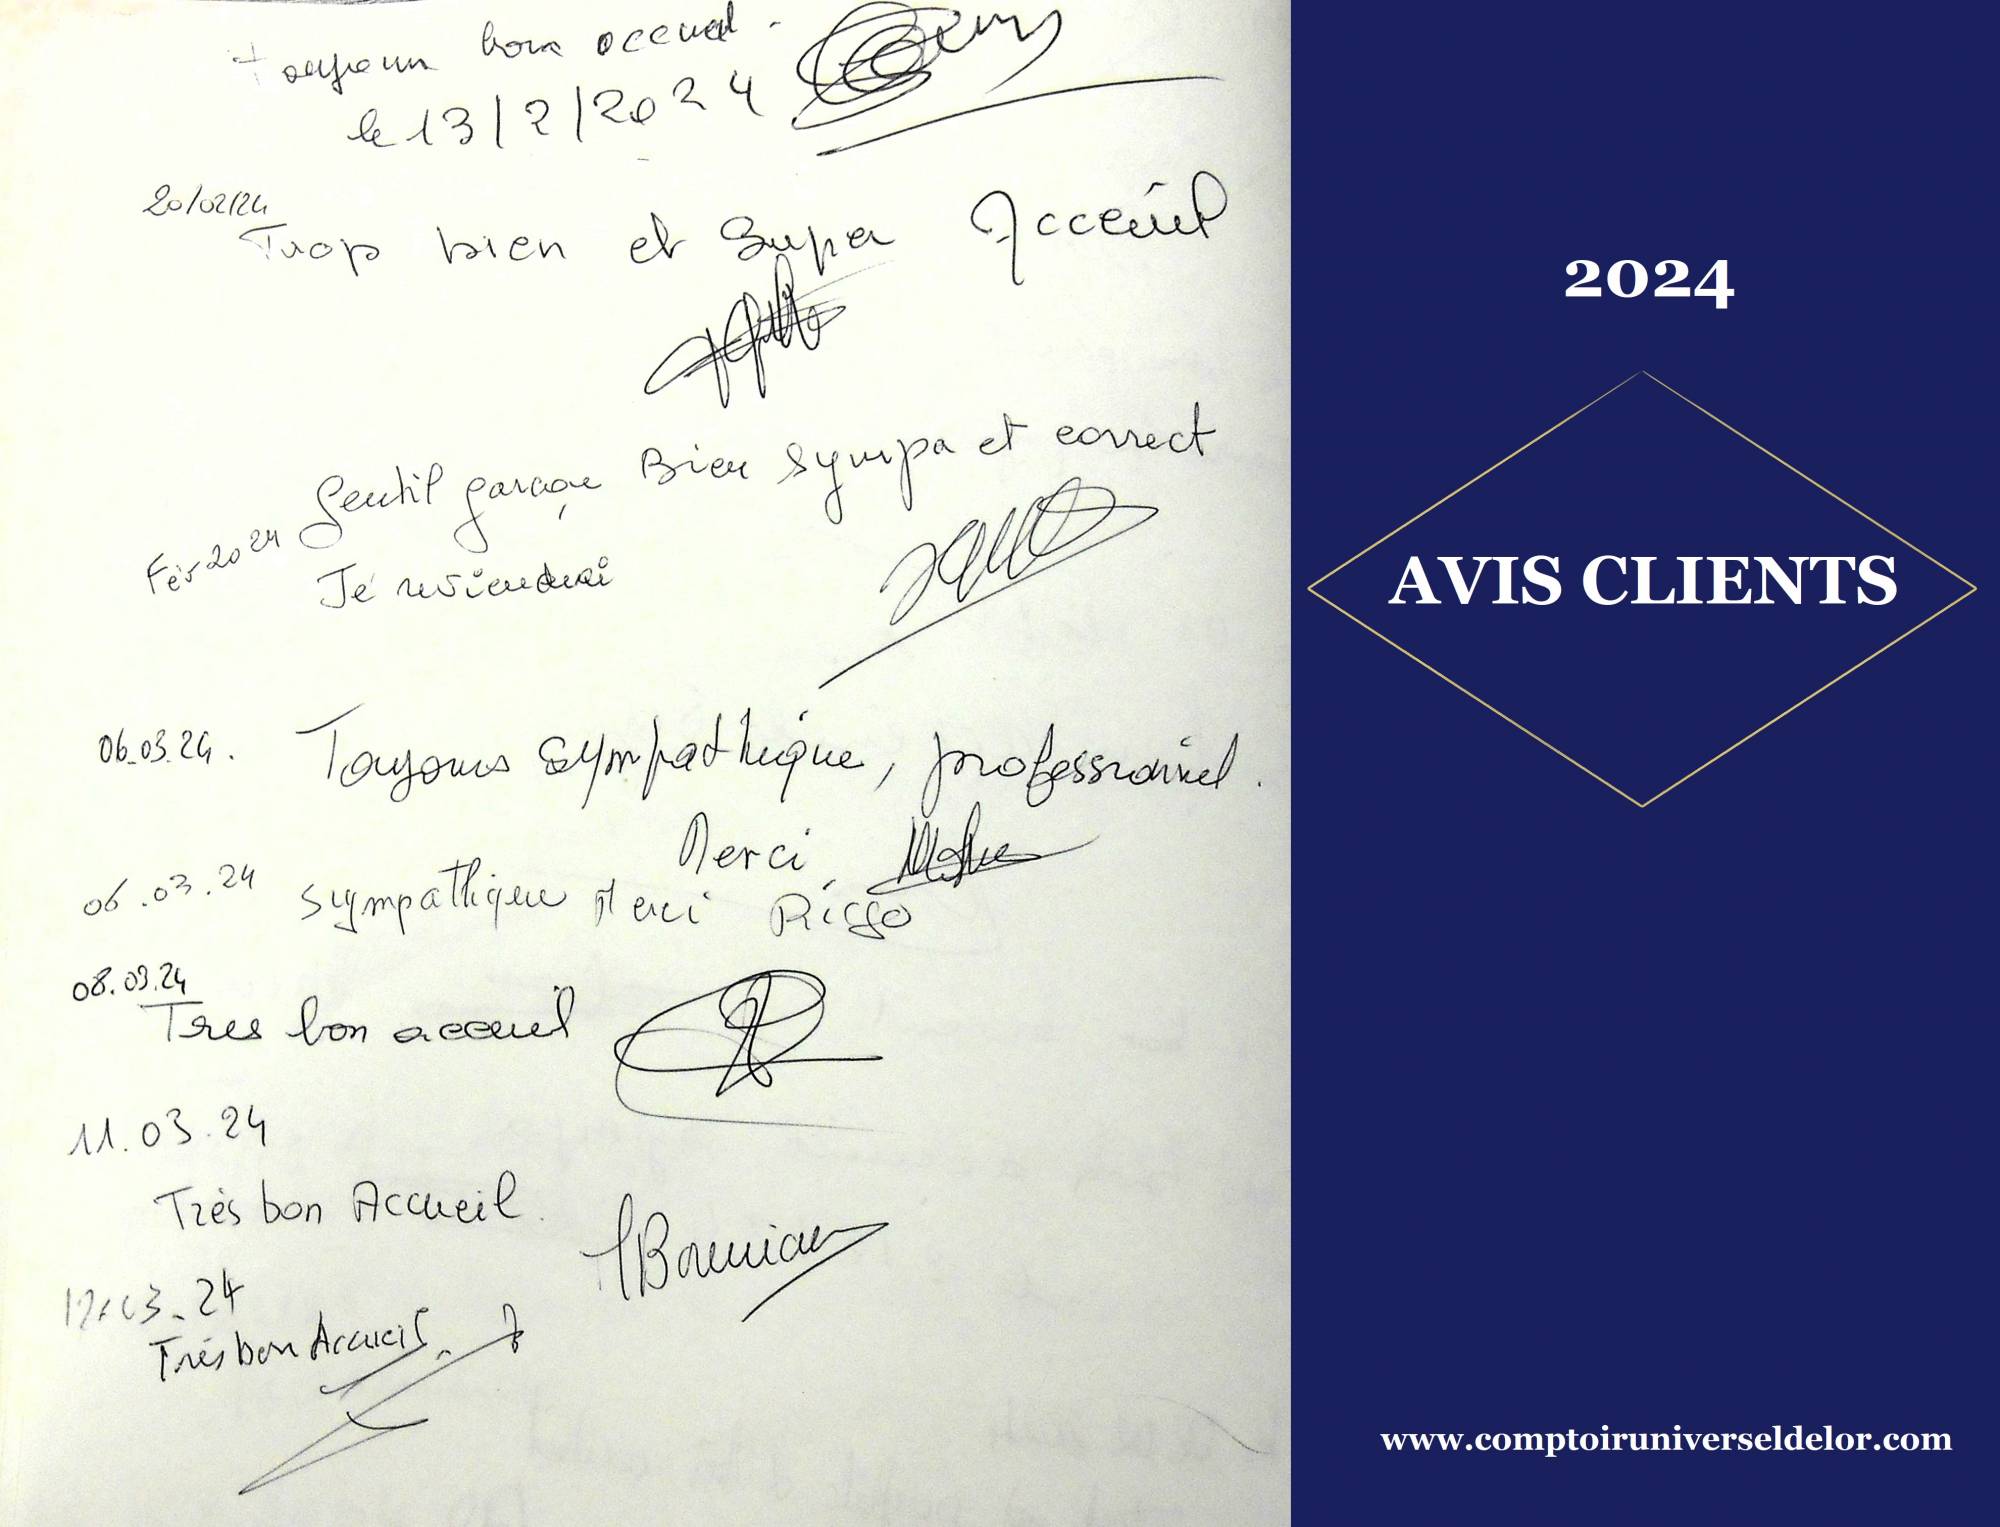 toujours bon accueil.
le 13/2/2024
20/02/24
Trop bien et Super Acceuil
Gentil garçon Bien sympa et correct
Fév 2024
Je reviendrai
06.03.24. Toujours sympathique, professionnel.
Merci
06.03.24 Sympathique Merci
08.03.24
Tres bon accueil
11.03.24
Très bon Accueil.
12.03.24
Très bon Accueil.
2024
AVIS CLIENTS
www.comptoiruniverseldelor.com